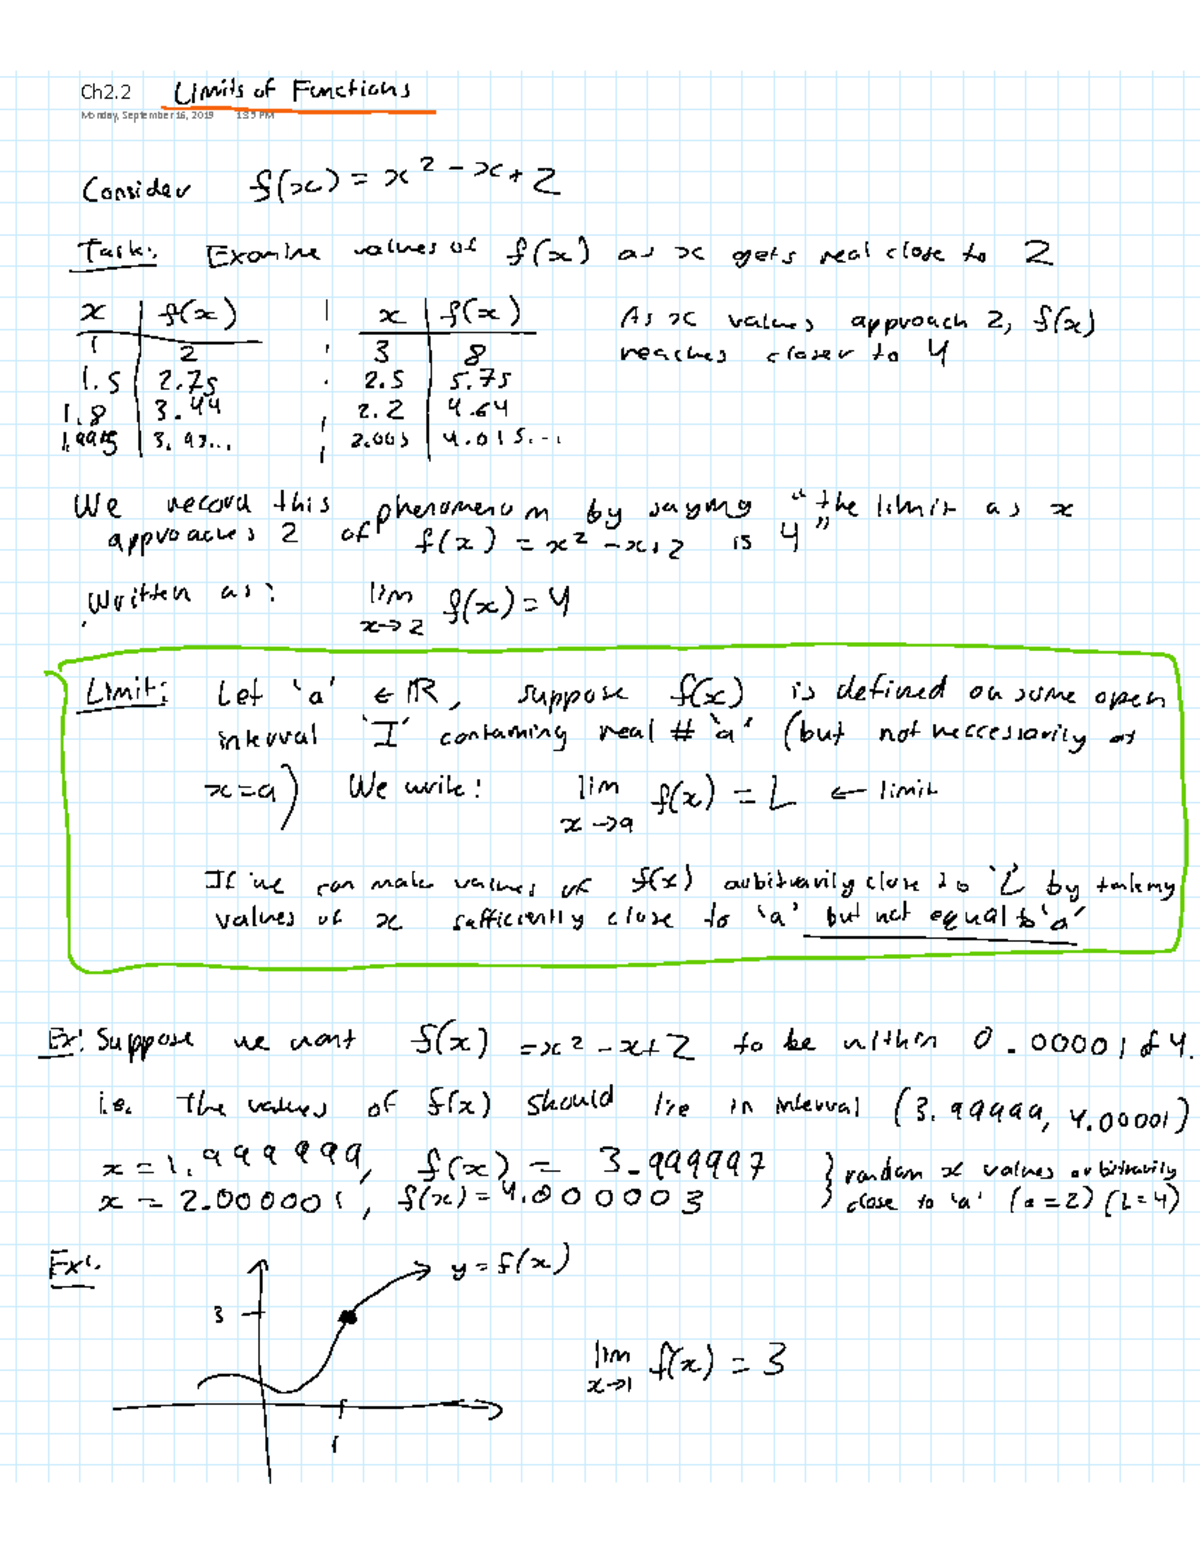 Ch2.2 Limits of Functions
Monday, September 16, 2019 1:35 PM
Consider f(x) = x² - x + 2
Task: Examine values of f(x) as x gets real close to 2
x | f(x) x | f(x) As x values approach 2, f(x)
1 | 2 3 | 8 reaches closer to 4
1.5 | 2.75 2.5 | 5.75
1.8 | 3.44 2.2 | 4.64
1.995 | 3.98... 2.005 | 4.015...
We record this phenomenom by saying "the limit as x
approaches 2 of f(x) = x² - x + 2 is 4"
Written as: lim x→2 f(x) = 4
Limit: Let 'a' ∈ ℝ, suppose f(x) is defined on some open
interval 'I' containing real # 'a' (but not neccessarily at
x=a) We write: lim x→a f(x) = L ← limit
If we can make values of f(x) arbitrarily close to 'L' by taking
values of x sufficiently close to 'a' but not equal to 'a'
Ex: Suppose we want f(x) = x² - x + 2 to be within 0.00001 of 4.
i.e. The values of f(x) should lie in interval (3.99999, 4.00001)
x = 1.999999, f(x) = 3.999997 } random x values arbitrarily
x = 2.000001, f(x) = 4.000003 } close to 'a' (a=2) (L=4)
Ex: y = f(x)
3
lim x→1 f(x) = 3
1